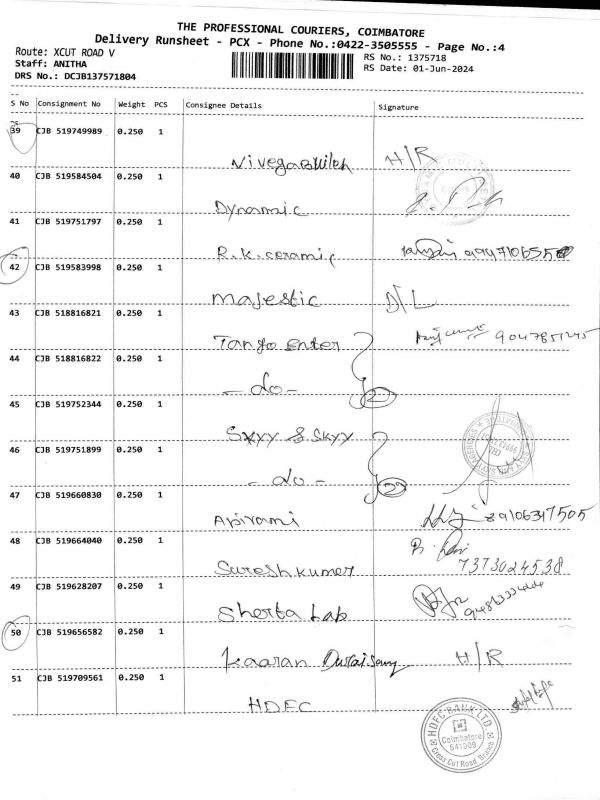 THE PROFESSIONAL COURIERS, COIMBATORE
Delivery Runsheet - PCX - Phone No.:0422-3505555 - Page No.:4
Route: XCUT ROAD V
RS No.: 1375718
Staff: ANITHA
RS Date: 01-Jun-2024
DRS No.: DCJB137571804
S No Consignment No Weight PCS Consignee Details Signature
39 CJB 519749989 0.250 1
H/R
40 CJB 519584504 0.250 1
Dynamic
41 CJB 519751797 0.250 1
R.K.ceramic
42 CJB 519583998 0.250 1
Majestic D/L
43 CJB 518816821 0.250 1
Tango Enter
44 CJB 518816822 0.250 1
- do - 2
45 CJB 519752344 0.250 1
Skyy & Skyy
46 CJB 519751899 0.250 1
- do - 2
47 CJB 519660830 0.250 1
Apirami
48 CJB 519664040 0.250 1
Sureshkumar 7373024538
49 CJB 519628207 0.250 1
Lab
50 CJB 519656582 0.250 1
Kaaran Duraisamy H/R
51 CJB 519709561 0.250 1
HDFC
HDFC BANK LTD.
Coimbatore
641009
Cross Cut Road Branch